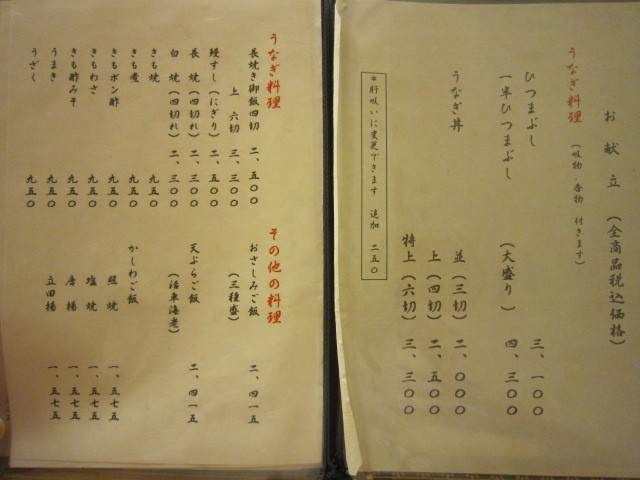 お献立（全商品税込価格）
うなぎ料理（吸物・香物 付きます）
ひつまぶし 三、一〇〇
一半ひつまぶし（大盛り） 四、三〇〇
うなぎ丼 並（三切） 二、〇〇〇
上（四切） 二、五〇〇
特上（六切） 三、三〇〇
＊肝吸いに変更できます 追加 二五〇
うなぎ料理
長焼き御飯四切 二、五〇〇
上 六切 三、三〇〇
鰻すし（にぎり） 二、五〇〇
長焼（四切れ） 二、三〇〇
白焼（四切れ） 二、三〇〇
きも焼 九五〇
きも煮 九五〇
きもポン酢 九五〇
きもわさ 九五〇
きも酢みそ 九五〇
うまき 九五〇
うざく 九五〇
その他の料理
おさしみご飯（三種盛） 二、四一五
天ぷらご飯（活車海老） 二、四一五
かしわご飯
照焼 一、五七五
塩焼 一、五七五
唐揚 一、五七五
立田揚 一、五七五